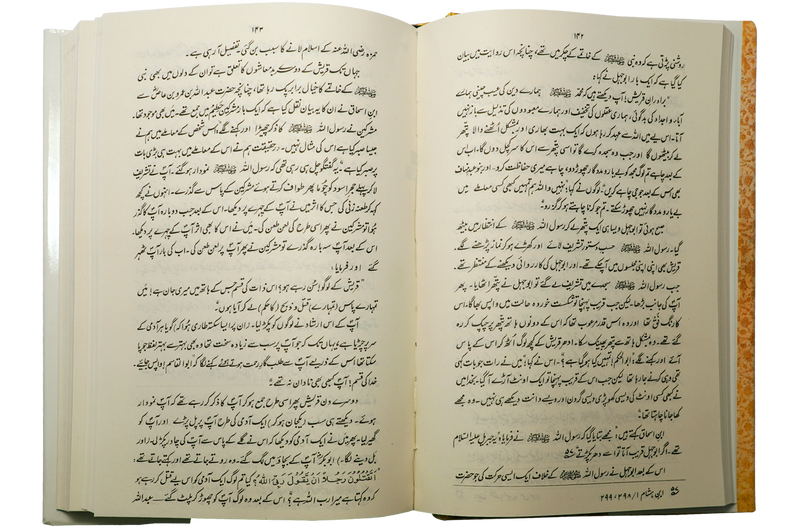 ۱۴۲
روشنی پڑتی ہے کہ وہ نبی ﷺ کے خاتمے کے چکر میں تھے، چنانچہ اس روایت میں بیان
کیا گیا ہے کہ ایک بار ابوجہل نے کہا:
"برادرانِ قریش! آپ دیکھتے ہیں کہ محمد ﷺ ہمارے دین کی عیب چینی، ہمارے
آباء و اجداد کی بدگوئی، ہماری عقلوں کی تخفیف اور ہمارے معبودوں کی تذلیل سے باز نہیں
آتا۔ اس لیے میں اللہ سے عہد کر رہا ہوں کہ ایک بہت بھاری اور بمشکل اُٹھنے والا پتھر
لے کر بیٹھوں گا اور جب وہ سجدہ کرے گا تو اسی پتھر سے اس کا سر کچل دوں گا۔ اب اس
کے بعد چاہے تم لوگ مجھ کو بے یار و مددگار چھوڑ دو، چاہے میری حفاظت کرو۔ اور بنو عبد مناف
بھی اس کے بعد جو جی چاہے کریں" لوگوں نے کہا: "نہیں واللہ ہم تمہیں کبھی کسی معاملے میں
بے یار و مددگار نہیں چھوڑ سکتے۔ تم جو کرنا چاہتے ہو کر گزرو"۔
صبح ہوئی تو ابوجہل ویسا ہی ایک پتھر لے کر رسول اللہ ﷺ کے انتظار میں بیٹھ
گیا۔ رسول اللہ ﷺ حسب دستور تشریف لائے اور کھڑے ہو کر نماز پڑھنے لگے۔
قریش بھی اپنی اپنی مجلسوں میں آچکے تھے۔ اور ابوجہل کی کارروائی دیکھنے کے منتظر تھے۔
جب رسول اللہ ﷺ سجدے میں تشریف لے گئے تو ابوجہل نے پتھر اٹھایا۔ پھر
آپ کی جانب بڑھا۔ لیکن جب قریب پہنچا تو شکست خوردہ حالت میں واپس بھاگا۔ اس
کا رنگ فق تھا اور وہ اس قدر مرعوب تھا کہ اس کے دونوں ہاتھ پتھر پر چپک کر رہ
گئے تھے۔ وہ بمشکل ہاتھ سے پتھر پھینک سکا۔ ادھر قریش کے کچھ لوگ اُٹھ کر اس کے پاس
آئے اور کہنے لگے: "ابو الحکم! تمہیں کیا ہو گیا ہے؟" اس نے کہا: "میں نے رات جو بات کہی
تھی وہی کرنے جا رہا تھا لیکن جب اس کے قریب پہنچا تو ایک اونٹ آڑے آ گیا۔ بخدا میں
نے کبھی کسی اونٹ کی ویسی کھوپڑی ویسی گردن اور ویسے دانت دیکھے ہی نہیں۔ وہ مجھے
کھا جانا چاہتا تھا"۔
ابن اسحاق کہتے ہیں: "مجھے بتایا گیا کہ رسول اللہ ﷺ نے فرمایا: یہ جبریل علیہ السلام
تھے۔ اگر ابوجہل قریب آتا تو اسے دھر پکڑتے۔
اس کے بعد ابوجہل نے رسول اللہ ﷺ کے خلاف ایک ایسی حرکت کی جو حضرت
ابن ہشام ۱/ ۲۹۸، ۲۹۹
۱۴۳
حمزہ رضی اللہ عنہ کے اسلام لانے کا سبب بن گئی۔ تفصیل آ رہی ہے۔
جہاں تک قریش کے دوسرے بدمعاشوں کا تعلق ہے تو ان کے دلوں میں بھی نبی
ﷺ کے خاتمے کا خیال برابر پک رہا تھا، چنانچہ حضرت عبداللہ بن عمرو بن عاص سے
ابن اسحاق نے ان کا یہ بیان نقل کیا ہے کہ ایک بار مشرکین حطیم میں جمع تھے۔ میں بھی موجود تھا۔
مشرکین نے رسول اللہ ﷺ کا ذکر چھیڑا اور کہنے لگے، اس شخص کے معاملے میں ہم نے
جیسا صبر کیا ہے اس کی مثال نہیں۔ درحقیقت ہم نے اس کے معاملے میں بہت ہی بڑی بات
پر صبر کیا ہے"۔ یہ گفتگو چل ہی رہی تھی کہ رسول اللہ ﷺ نمودار ہو گئے۔ آپ نے تشریف
لا کر پہلے حجر اسود کو چوما پھر طواف کرتے ہوئے مشرکین کے پاس سے گذرے۔ انہوں نے کچھ
کہہ کر طعنہ زنی کی جس کا اثر میں نے آپ کے چہرے پر دیکھا۔ اس کے بعد جب دوبارہ آپ کا گذر
ہوا تو مشرکین نے پھر اسی طرح کی لعن طعن کی۔ میں نے اس کا بھی اثر آپ کے چہرے پر دیکھا۔
اس کے بعد آپ سہ بارہ گذرے تو مشرکین نے پھر آپ پر لعن طعن کی۔ اب کی بار آپ ٹھہر
گئے اور فرمایا،
"قریش کے لوگو! سن رہے ہو؟ اس ذات کی قسم جس کے ہاتھ میں میری جان ہے! میں
تمہارے پاس (تمہارے) قتل و ذبح (کا حکم) لے کر آیا ہوں"۔
آپ کے اس ارشاد نے لوگوں کو پکڑ لیا۔ ان پر ایسا سکتہ طاری ہوا کہ گویا ہر آدمی کے
سر پر چڑیا ہے، یہاں تک کہ جو آپ پر سب سے زیادہ سخت تھا وہ بھی بہتر سے بہتر لفظ جو پا
سکتا تھا اس کے ذریعے آپ سے طلبگارِ رحمت ہوتے ہوئے کہنے لگا کہ "ابو القاسم! واپس جائیے۔
خدا کی قسم! آپ کبھی بھی نادان نہ تھے"۔
دوسرے دن قریش پھر اسی طرح جمع ہو کر آپ کا ذکر کر رہے تھے کہ آپ نمودار
ہوئے۔ دیکھتے ہی سب (یکجان ہو کر) ایک آدمی کی طرح آپ پر پل پڑے اور آپ کو
گھیر لیا۔ پھر میں نے ایک آدمی کو دیکھا کہ اس نے گلے کے پاس سے آپ کی چادر پکڑ لی۔ (اور
بل دینے لگا۔) ابوبکر آپ کے بچاؤ میں لگ گئے۔ وہ روتے جاتے تھے اور کہتے جاتے تھے:
اَتَقْتُلُوْنَ رَجُلًا اَنْ يَّقُوْلَ رَبِّيَ اللّٰهُ؟ کیا تم لوگ ایک آدمی کو اس لیے قتل کر رہے ہو
کہ وہ کہتا ہے میرا رب اللہ ہے؟ اس کے بعد وہ لوگ آپ کو چھوڑ کر پلٹ گئے۔ عبداللہ